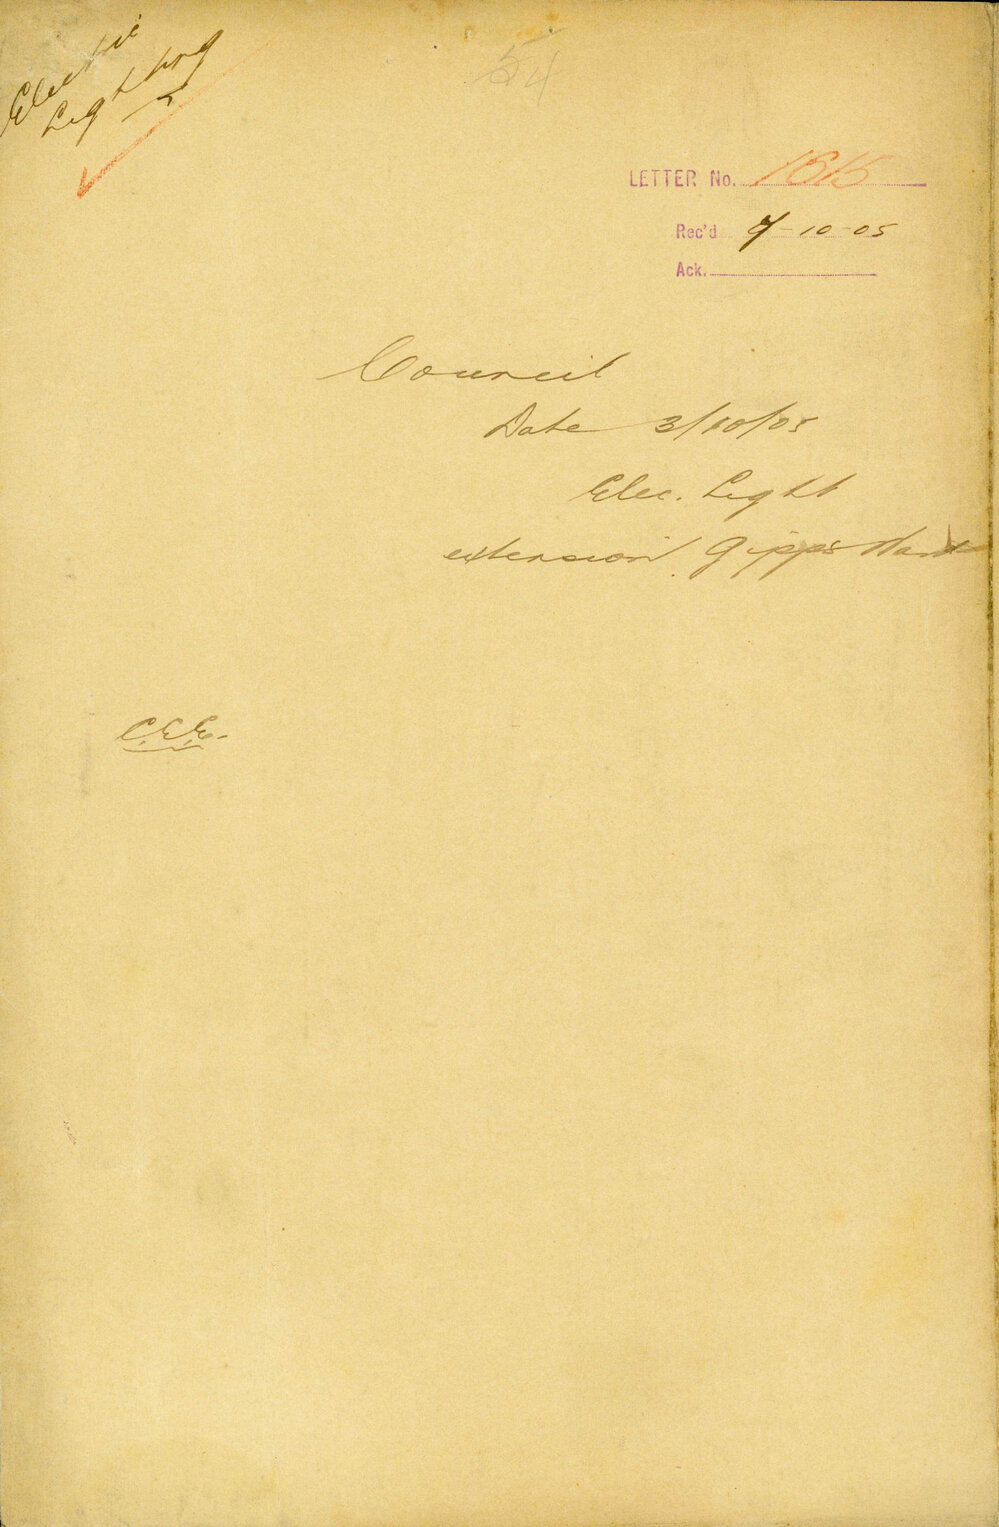 Electric
Lighting
54
LETTER No. 1515
Rec'd 7-10-05
Ack.
Council
Date 3/10/05
Elec. Light
extension Gipps Ward
C.E.E.